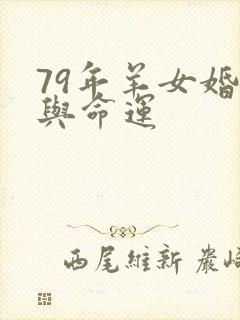 79年羊女婚
與命運
西尾維新 嚴崎